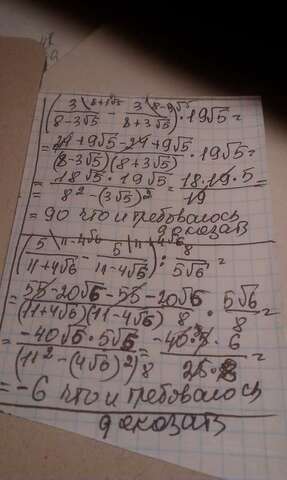 (3\8+3√5/8-3√5 - 3\8-3√5/8+3√5) · 19√5 =
= 24+9√5-24+9√5/(8-3√5)(8+3√5) · 19√5 =
= 18√5 · 19√5/8²-(3√5)² = 18·19·5/19 =
= 90 что и требовалось
доказать
(5\11-4√6/11+4√6 - 5\11+4√6/11-4√6) : 8/5√6 =
= 55-20√6-55-20√6/(11+4√6)(11-4√6) · 5√6/8 =
= -40√6·5√6/(11²-(4√6)²)8 = -40·5·6/25·8 =
= -6 что и требовалось
доказать